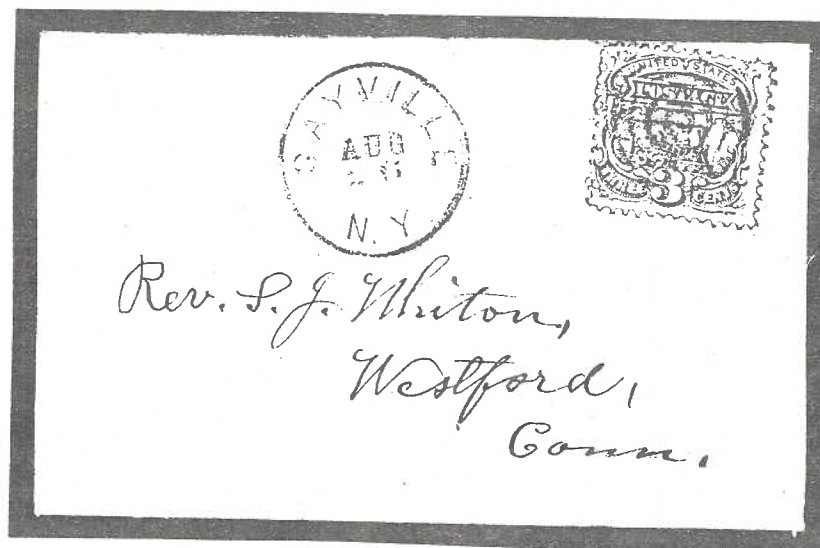 SAYVILLE
AUG
N.Y.
UNITED STATES
3
Rev. S. J. Whiton,
Westford,
Conn.